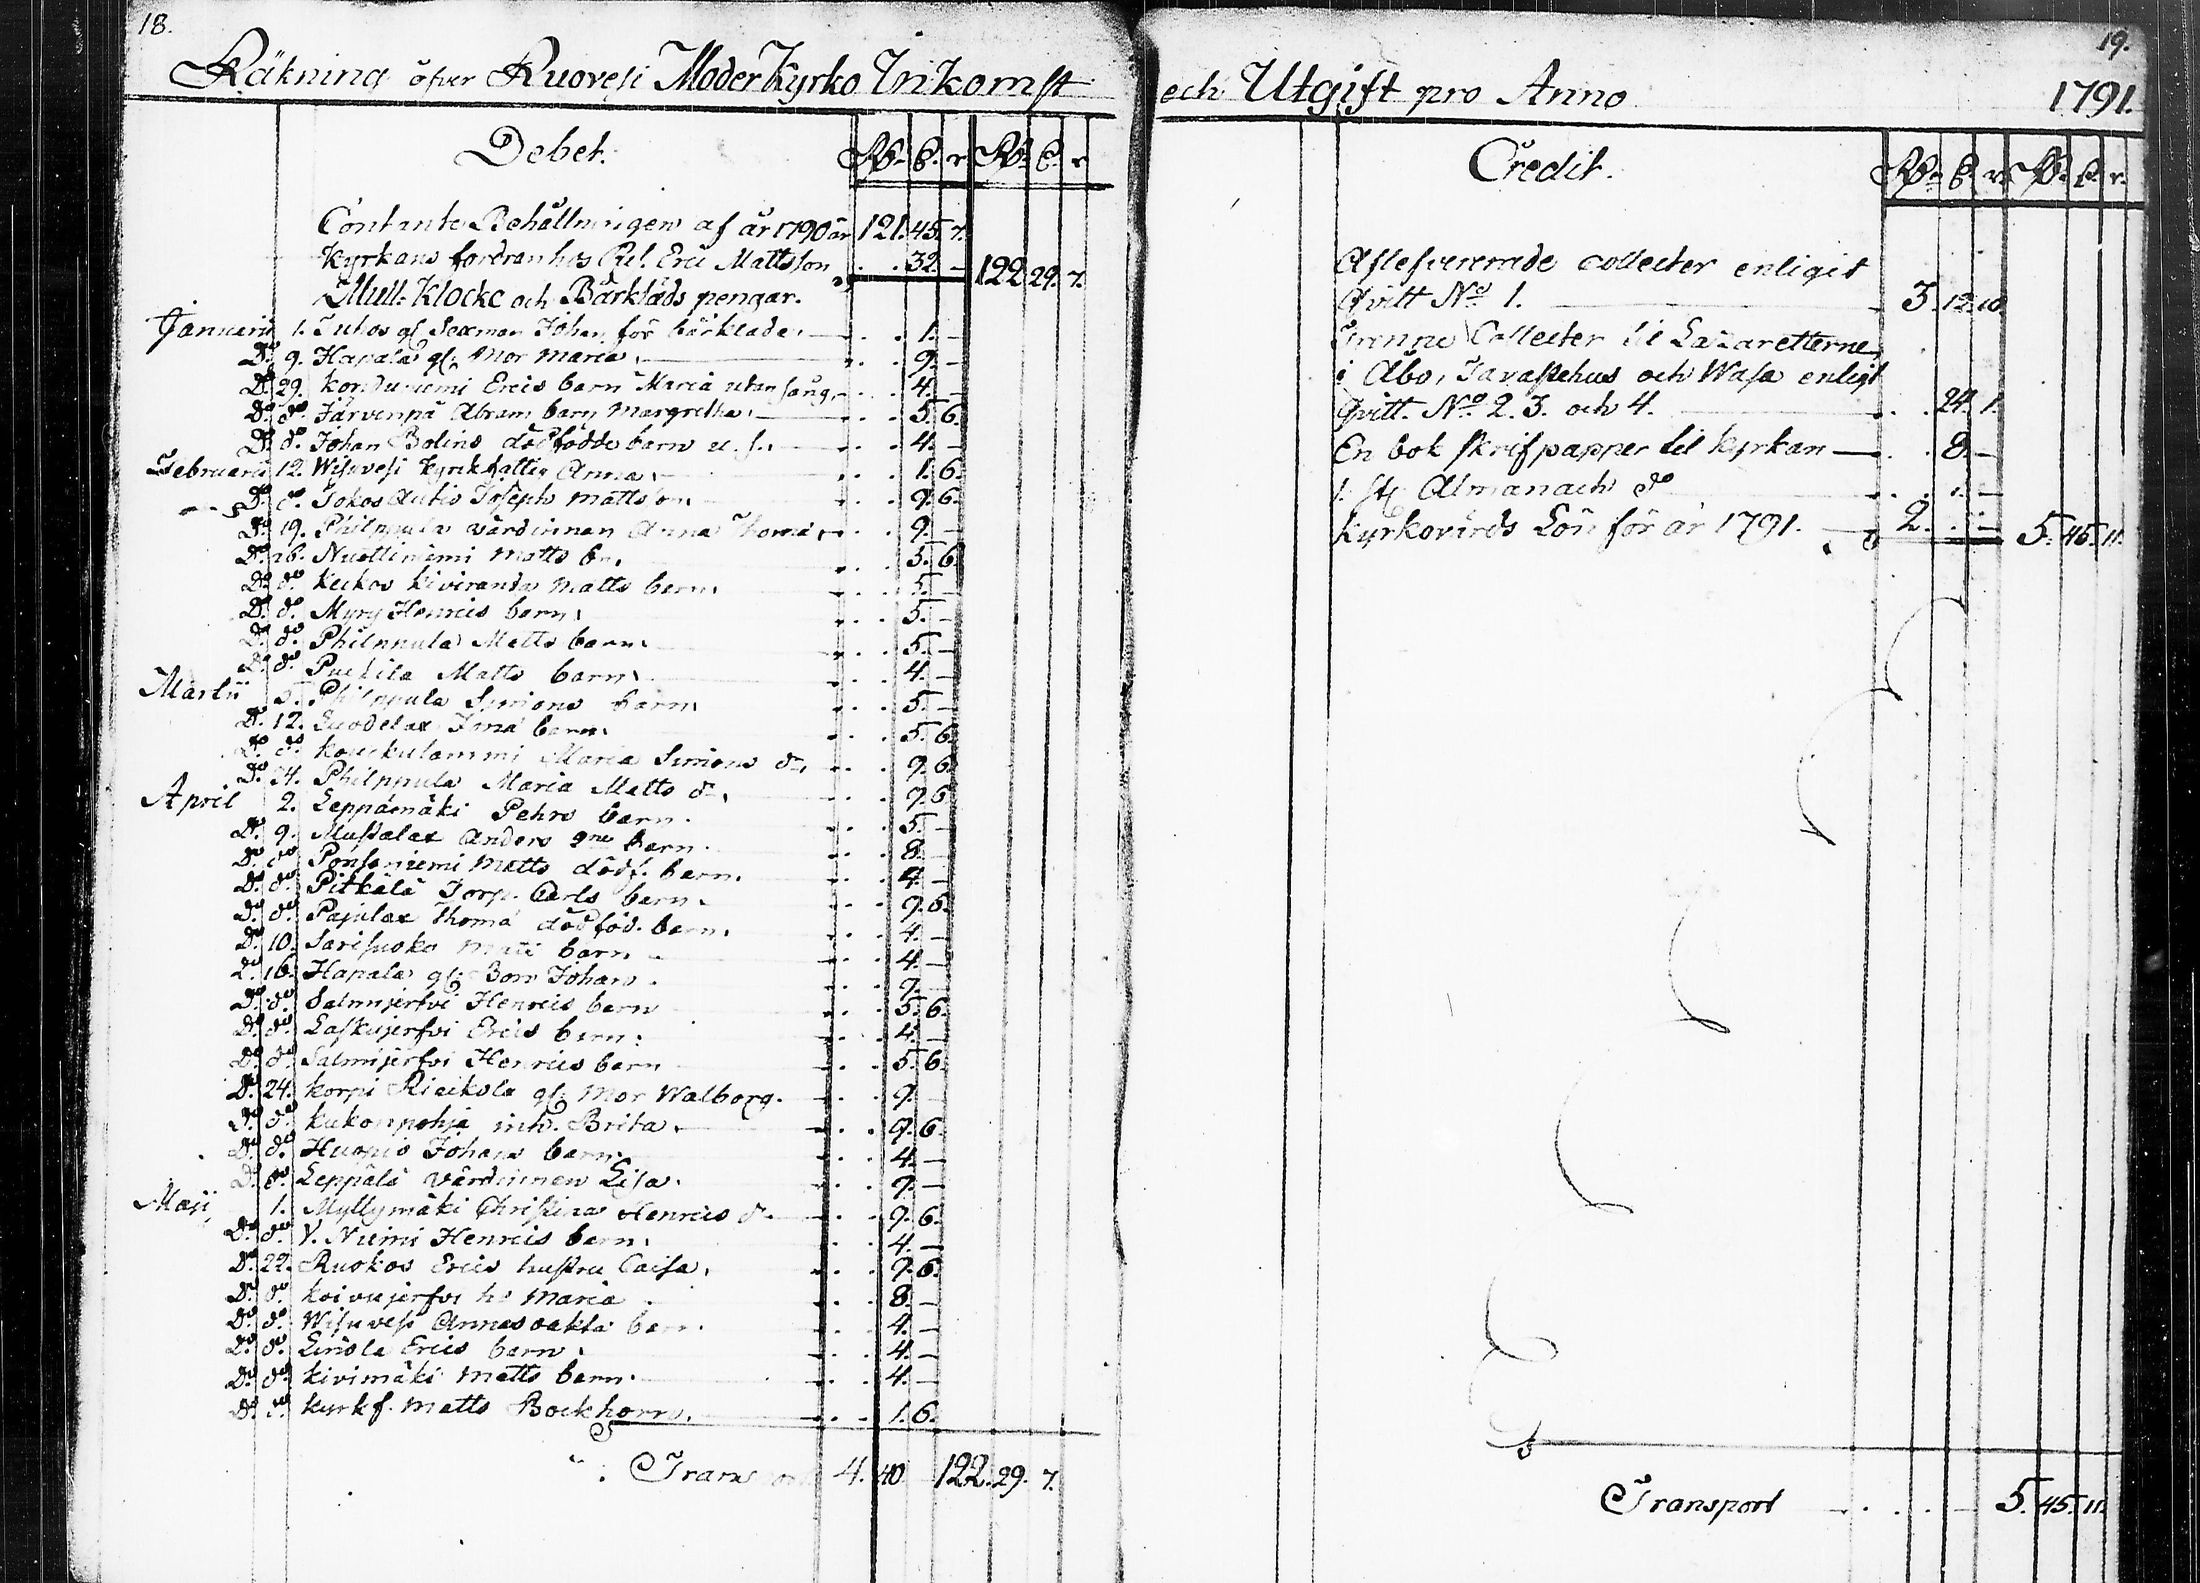 18.
Räkning öfver Ruovesi Moder Kyrko Inkomst
Debet. Rd. S. r. Rd. S. r.
Contante Behållningen af år 1790 är 121. 45. 7.
Kyrkans fordran hos Eric Mattsson . . 32. — 122 29. 7.
Mull- Klocke och Bårkläds pengar.
Januarii 1. gl. Sexman Johan för bårklade . . 1. —
Do 9. Hapala gl. Mor Maria . . 9. —
Do 29. Ericis barn Maria utan sång . . 4. —
Do do Järvenpä Abram barn Margretha . . 5. 6.
Do do Johan Bolins dödfödde barn u. s. . . 4. —
Februarii 12. Wisuvesi kyrkfattig Anna . . 1. 6.
Do do Jokos Autio Joseph Mattson . . 9. 6.
Do 19. Philppula värdinnan Anna Thoma . . 9. —
Do 26. Nuottiniemi Matts bn. . . 5. 6.
Do do Keikos Kiviranda Matts barn . . 5. —
Do do Myry Henrics barn . . 5. —
Do do Philppula Matts barn . . 5. —
Do do Puckila Matts barn . . 4. —
Martii 5. Philppula Simons barn . . 5. —
Do 12. barn . . 5. 6.
Do do Kouckulammi Maria Simons d. . . 9. 6.
Do 24. Philppula Maria Matts d. . . 9. 6
April 2. Leppämäki Pehrs barn . . 5. —
Do 9. Mustalax Anders 2ne barn . . 8. —
Do do Ponsaniemi Matts dödf. barn . . 4. —
Do do Pitkälä Torp. Carls barn . . 9. 6.
Do do Pajulax Thoma dödföd. barn . . 4. —
Do 10. Sarisuoko barn . . 4. —
Do 16. Hapala gl. Bom Johan . . 9. —
Do do Salmijerfvi Henrics barn . . 5. 6.
Do do Laskujerfvi Erics barn . . 4. —
Do do Salmijerfvi Henrics barn . . 5. 6.
Do 24. Korpi gl. Mor Walborg . . 9. —
Do do Kukonpohja inh. Brita . . 9. 6.
Do do Huopio Johans barn . . 4. —
Do do Leppälä värdinnan Lisa . . 9. —
Maji 1. Myllymäki Christina Henrics d. . . 9. 6.
Do do Y. Niemi Henrics barn . . 4. —
Do 22. Ruokos Erics hustru Caisa . . 9. 6.
Do do Koivujerfvi h. Maria . . 8. —
Do do Wisuvesi Annas oäkta barn . . 4. —
Do do Linola Erics barn . . 4. —
Do do Kivimäki Matts barn . . 4. —
Do do Kyrkf. Matts Bockhorn . . 1. 6.
4. 40 122. 29. 7.
19.
och Utgift pro Anno 1791.
Credit. Rd. S. r. Rd. S. r.
Aflefvererade collecter enligit
Qvitt No 1. 3. 12. 10.
Trenne Collecter til Lazaretterne
i Åbo, Tavastehus och Wasa enligt
Qvitt. No 2. 3. och 4. . . 24. 1.
En bok skrifpapper til kyrkan . . 8. —
1. st. Almanach do . . 1. —
Kyrkovärds Lön för år 1791. 2. . — 5. 45. 11.
Transport 5. 45. 11.